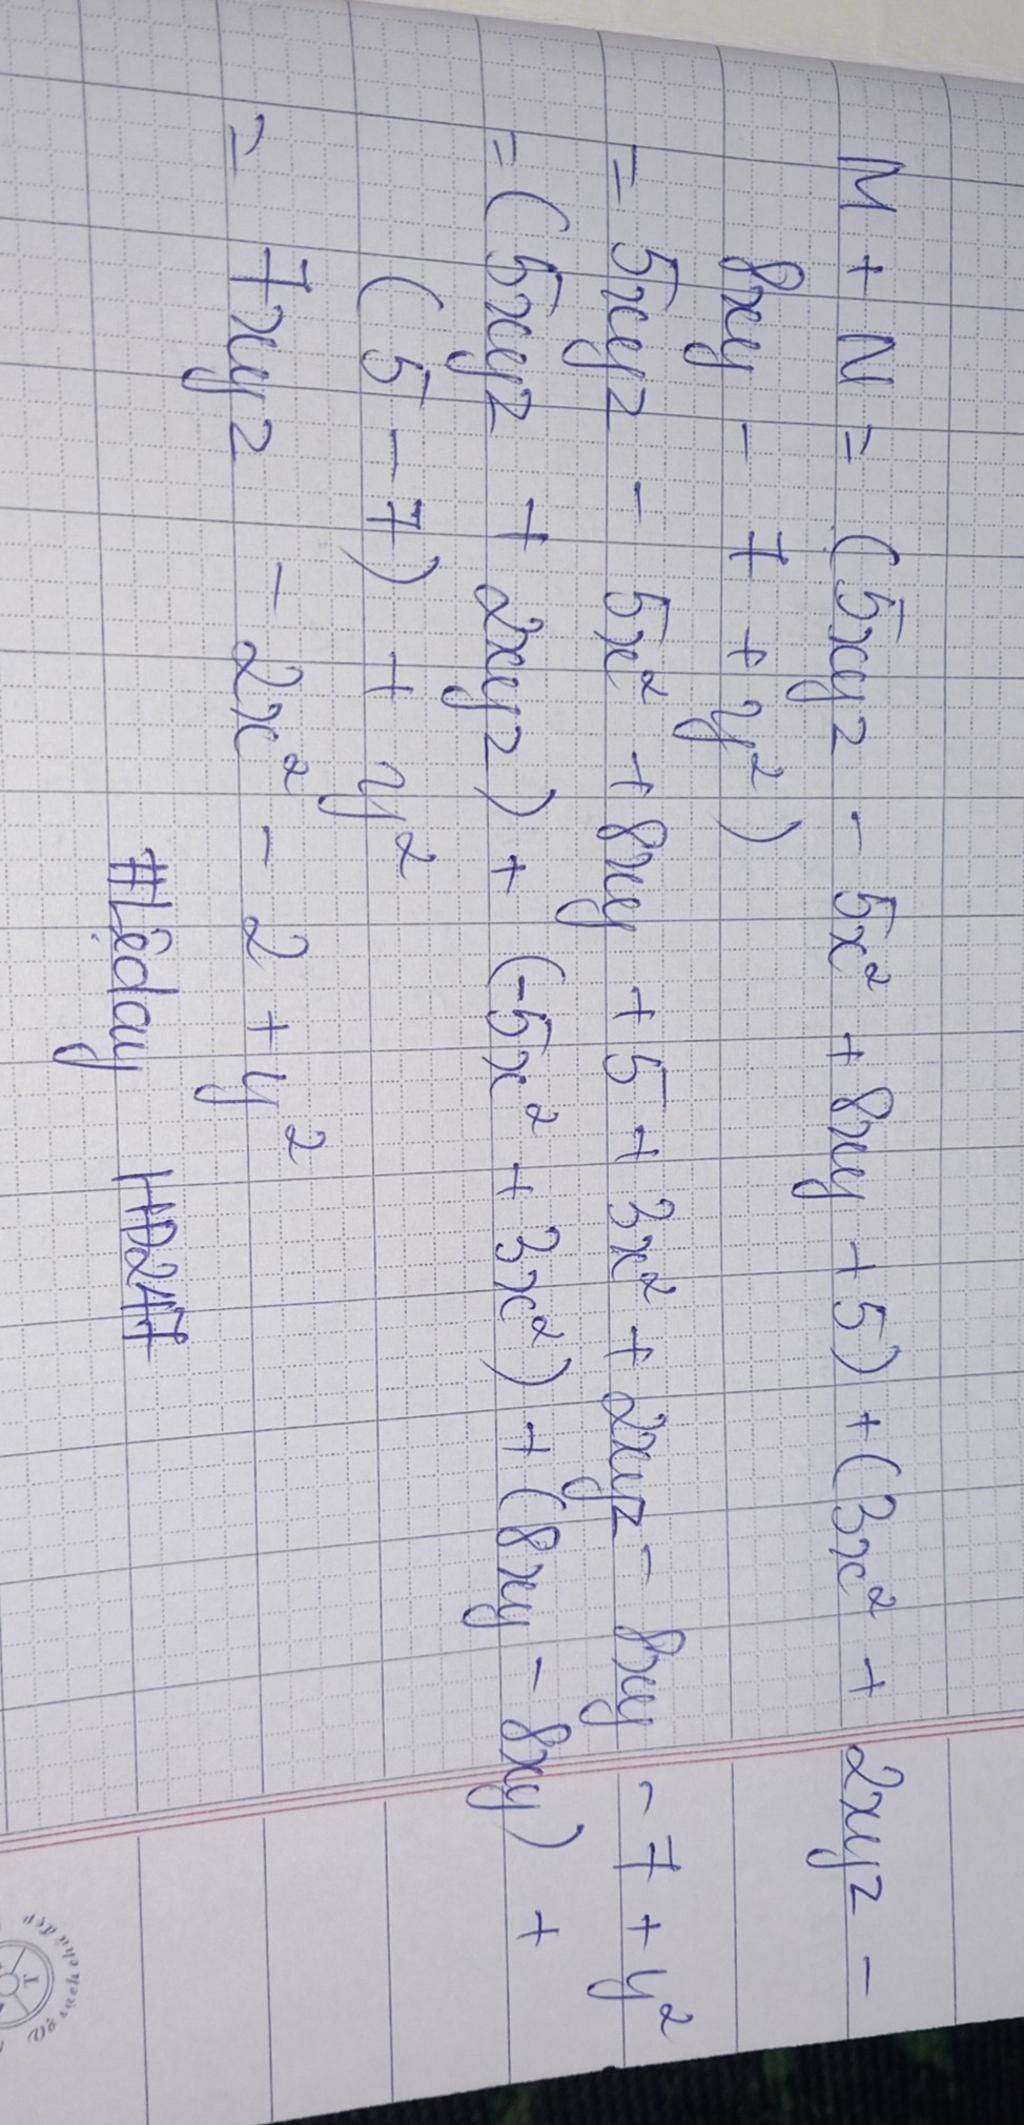 M + N = (5xyz - 5x² + 8xy + 5) + (3x² + 2xyz -
8xy - 7 + y²)
= 5xyz - 5x² + 8xy + 5 + 3x² + 2xyz - 8xy - 7 + y²
= (5xyz + 2xyz) + (-5x² + 3x²) + (8xy - 8xy) +
(5 - 7) + y²
= 7xyz - 2x² - 2 + y²
#Lêday HD247